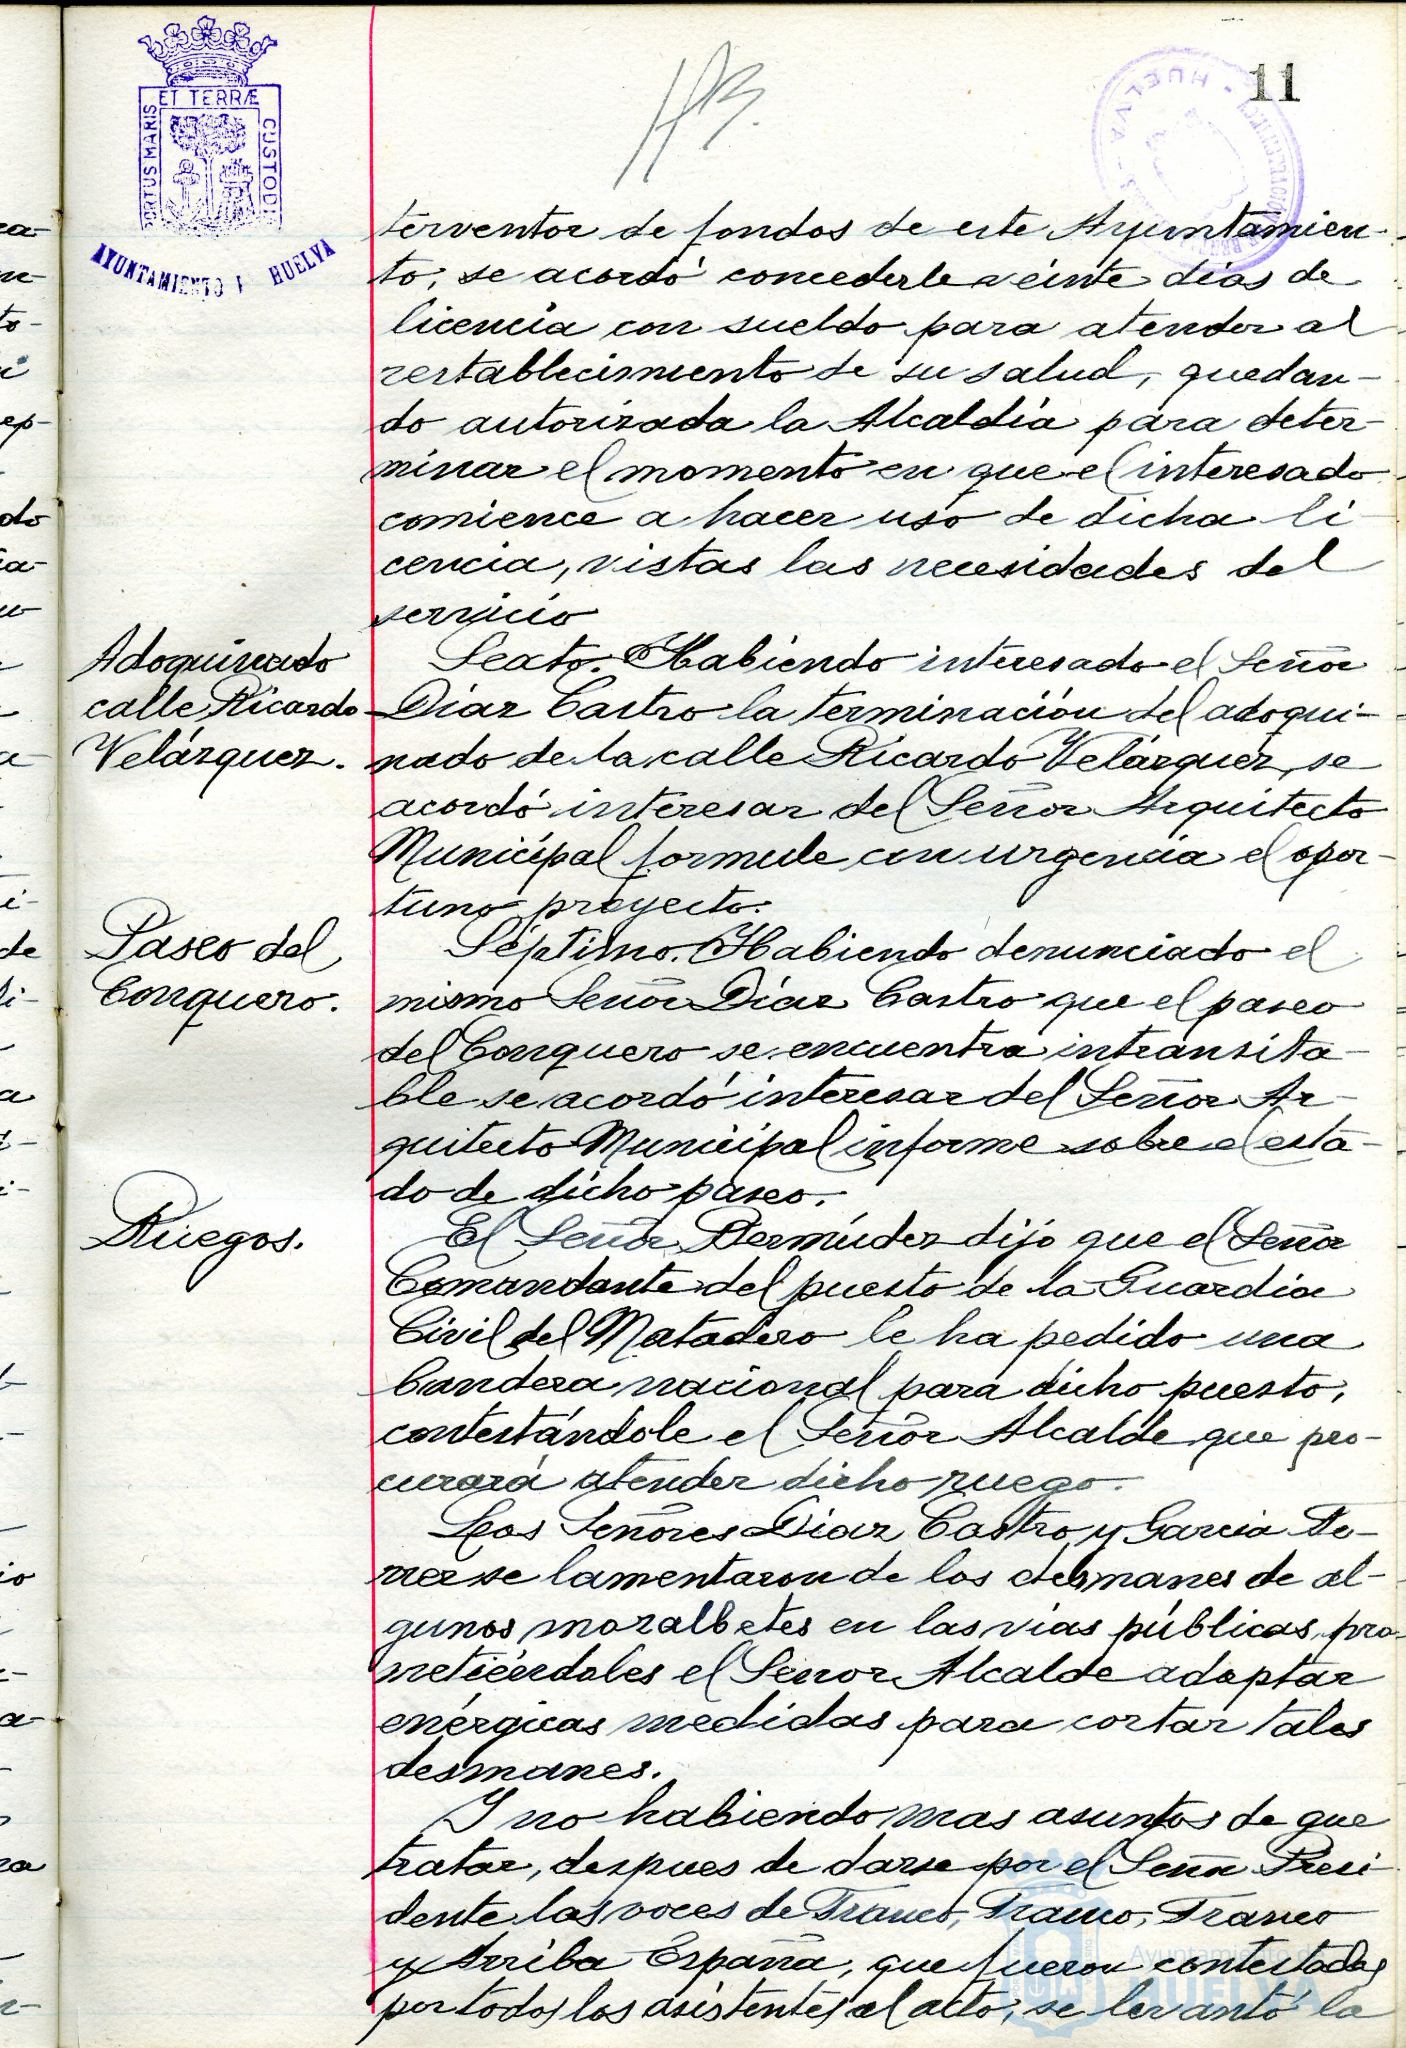 11
ET TERRÆ
PORTUS MARIS
CUSTODI
AYUNTAMIENTO HUELVA
HUELVA
terventor de fondos de este Ayuntamien-
to, se acordó concederle veinte días de
licencia con sueldo para atender al
restablecimiento de su salud, quedan-
do autorizada la Alcaldía para deter-
minar el momento en que el interesado
comience a hacer uso de dicha li
cencia, vistas las necesidades del
servicio
Adoquinado
calle Ricardo
Velázquez.
Sexto. Habiendo interesado el Señor
Díaz Castro la terminación del adoqui-
nado de la calle Ricardo Velázquez, se
acordó interesar del Señor Arquitecto
Municipal formule con urgencia el opor-
tuno proyecto.
Paseo del
Conquero.
Séptimo. Habiendo denunciado el
mismo Señor Díaz Castro que el paseo
del Conquero se encuentra intransita-
ble se acordó interesar del Señor Ar-
quitecto Municipal informe sobre el esta-
do de dicho paseo.
Ruegos.
El Señor Bermúdez dijo que el Señor
Comandante del puesto de la Guardia
Civil del Matadero le ha pedido una
bandera nacional para dicho puesto,
contestándole el Señor Alcalde que pro-
curará atender dicho ruego.
Los Señores Díaz Castro y García
se lamentaron de los desmanes de al-
gunos mozalbetes en las vías públicas, pro-
metiéndoles el Señor Alcalde adoptar
enérgicas medidas para cortar tales
desmanes.
Y no habiendo mas asuntos de que
tratar, despues de darse por el Señor Presi-
dente las voces de Franco, Franco, Franco
y Arriba España, que fueron contestadas
por todos los asistentes al acto, se levantó la
Ayuntamiento de
HUELVA